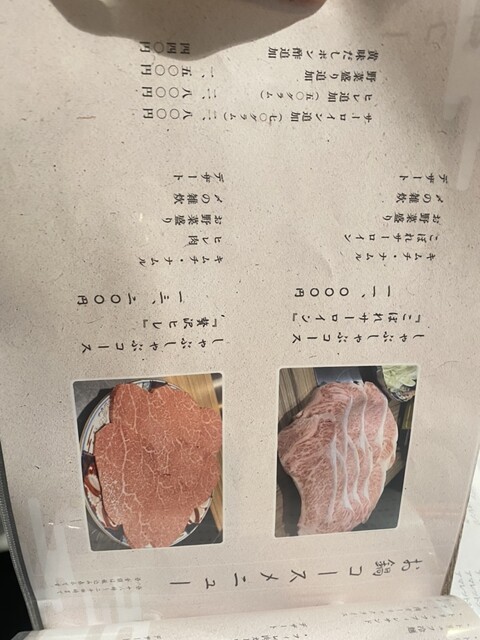 お鍋コースメニュー
しゃぶしゃぶコース
『こぼれサーロイン』
一一、〇〇〇円
キムチ・ナムル
こぼれサーロイン
お野菜盛り
〆の雑炊
デザート
しゃぶしゃぶコース
『贅沢ヒレ』
一三、二〇〇円
キムチ・ナムル
ヒレ肉
お野菜盛り
〆の雑炊
デザート
サーロイン追加（七〇グラム）　二、八〇〇円
ヒレ追加（五〇グラム）　二、八〇〇円
野菜盛り追加　一、五〇〇円
黄味だしポン酢追加　四四〇円